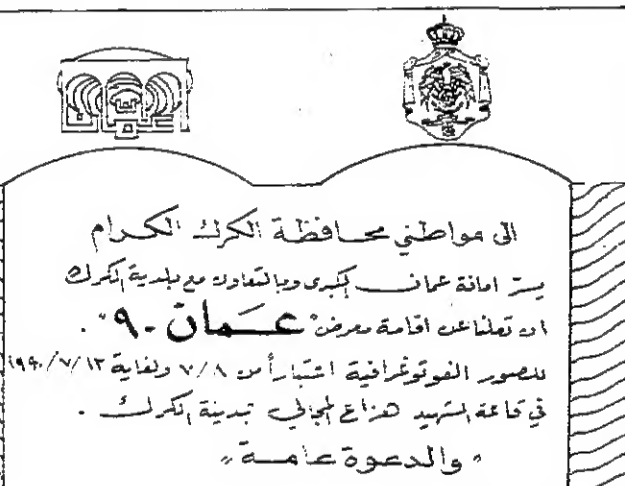 الى مواطني محافظة الكرك الكرام
يسر امانة عمان الكبرى وبالتعاون مع بلدية الكرك
ان تعلنا عن اقامة معرض "عمان ٩٠".
للصور الفوتوغرافية اعتباراً من ٧/٨ ولغاية ١٩٩٠/٧/١٣
في قاعة الشهيد هزاع المجالي بمدينة الكرك .
"والدعوة عامة"